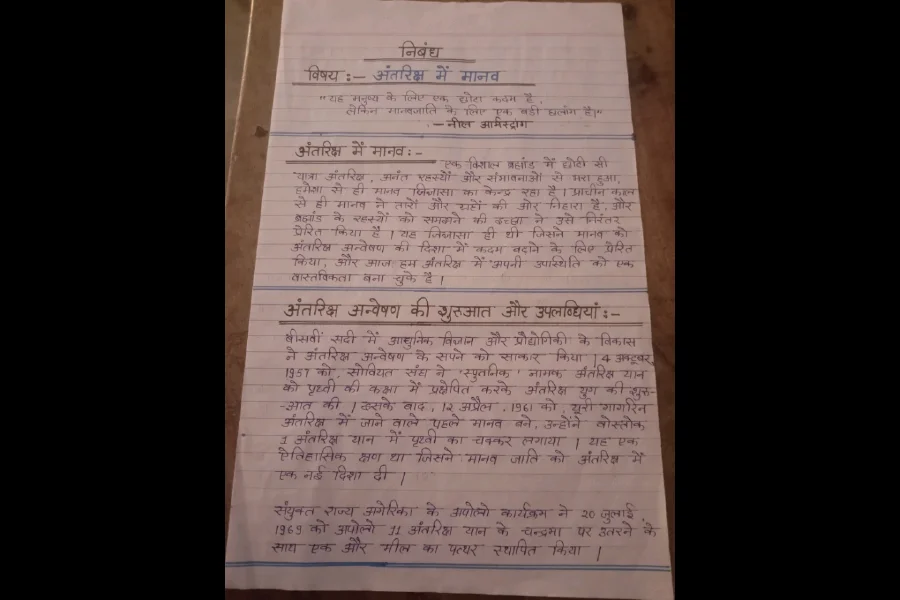 निबंध
विषय :- अंतरिक्ष में मानव
"यह मनुष्य के लिए एक छोटा कदम है,
लेकिन मानवजाति के लिए एक बड़ी छलांग है।"
- नील आर्मस्ट्रोंग
अंतरिक्ष में मानव :-
एक विशाल ब्रह्मांड में छोटी सी
यात्रा अंतरिक्ष, अनंत रहस्यों और संभावनाओं से भरा हुआ,
हमेशा से ही मानव जिज्ञासा का केन्द्र रहा है। प्राचीन काल
से ही मानव ने तारों और ग्रहों की ओर निहारा है, और
ब्रह्मांड के रहस्यों को समझने की इच्छा ने उसे निरंतर
प्रेरित किया है। यह जिज्ञासा ही थी जिसने मानव को
अंतरिक्ष अन्वेषण की दिशा में कदम बढ़ाने के लिए प्रेरित
किया, और आज हम अंतरिक्ष में अपनी उपस्थिति को एक
वास्तविकता बना चुके है।
अंतरिक्ष अन्वेषण की शुरुआत और उपलब्धियां :-
बीसवीं सदी में आधुनिक विज्ञान और प्रौद्योगिकी के विकास
ने अंतरिक्ष अन्वेषण के सपने को साकार किया। 4 अक्टूबर,
1957 को, सोवियत संघ ने 'स्पुतनिक' नामक अंतरिक्ष यान
को पृथ्वी की कक्षा में प्रक्षेपित करके अंतरिक्ष युग की शुरु-
-आत की। इसके बाद, 12 अप्रैल, 1961 को, यूरी गागरिन
अंतरिक्ष में जाने वाले पहले मानव बने, उन्होंने वोस्तोक
1 अंतरिक्ष यान में पृथ्वी का चक्कर लगाया। यह एक
ऐतिहासिक क्षण था जिसने मानव जाति को अंतरिक्ष में
एक नई दिशा दी।
संयुक्त राज्य अमेरिका के अपोलो कार्यक्रम ने 20 जुलाई,
1969 को अपोलो 11 अंतरिक्ष यान के चन्द्रमा पर उतरने के
साथ एक और मील का पत्थर स्थापित किया।